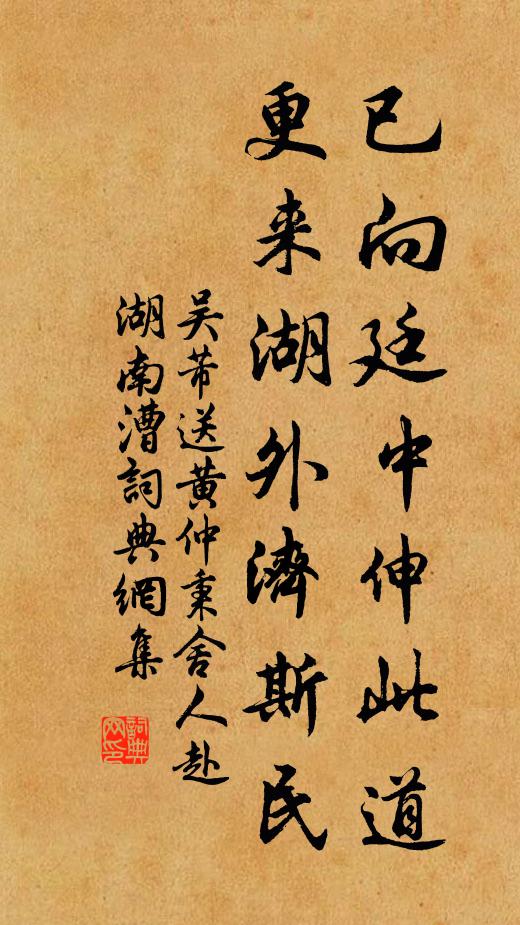 已向廷中伸此道
更来湖外濟斯民
吴芾送黄仲秉舍人赴
湖南漕詞典網集
詞典
网印